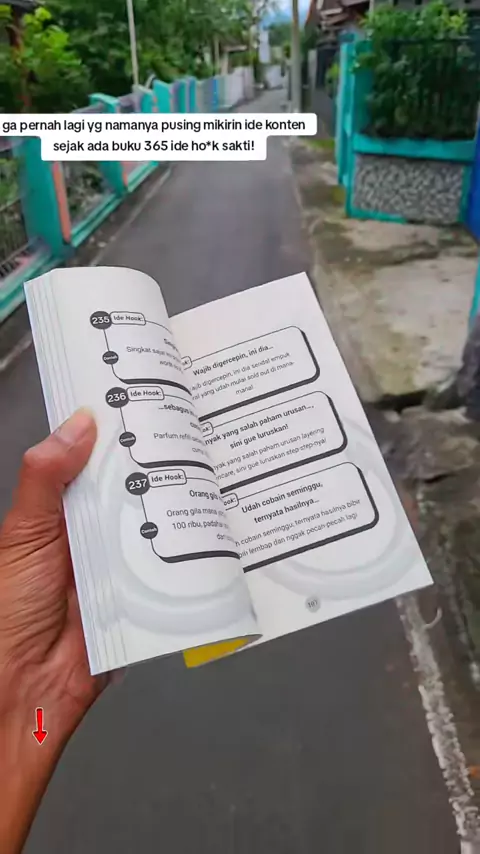 ga pernah lagi yg namanya pusing mikirin ide konten
sejak ada buku 365 ide ho*k sakti!
235 Ide Hook:
Contoh
Singkat
236 Ide Hook:
...sebagus
Contoh
Parfum refill
237 Ide Hook:
Orang
Contoh
Orang gila mana
100 ribu, padahal
Wajib digercepin, ini dia...
digercepin, ini dia sendal empuk
yang udah mulai sold out di mana-
mana!
yang salah paham urusan...,
sini gue luruskan!
yang salah paham urusan layering
sini gue luruskan step-step-nya!
Udah cobain seminggu,
ternyata hasilnya...
cobain seminggu, ternyata hasilnya bibir
lembap dan nggak pecah-pecah lagi
101